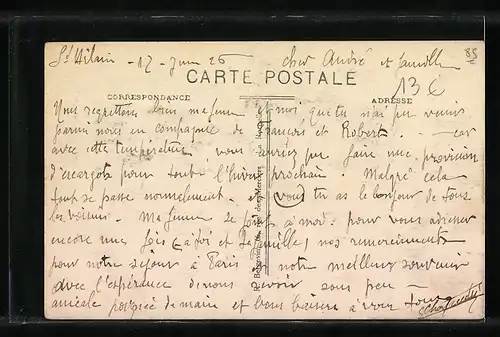 St Hilaire - 17 - Juin 26 cher André et famille
85
CARTE POSTALE
13€
CORRESPONDANCE ADRESSE
Nous regrettons bien ma femme et moi que tu n'ai pu venir
parmi nous en compagnie de et Robert. car
avec cette température vous auriez pu faire une provision
d'escargots pour tout l'hiver prochain. Malgré cela
tout se passe normalement. et vous tu as le bonjour de tous
les voisins. Ma femme se joint à moi pour vous adresser
encore une fois (à toi et ta famille) nos remerciements
pour notre séjour à Paris notre meilleur souvenir
avec l'espérance de vous revoir sous peu -
amicale poignée de main et bons baisers à vous tous